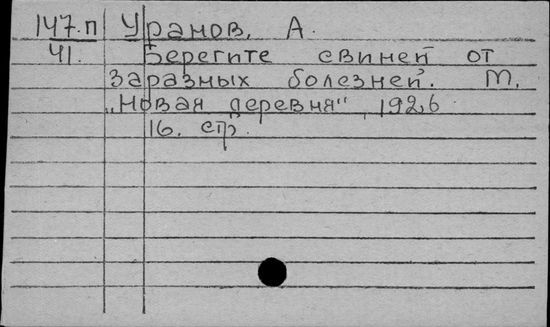 147.п Уранов, А.
41. Берегите свиней от
заразных болезней. М.
„Новая деревня" 1926
16. стр.